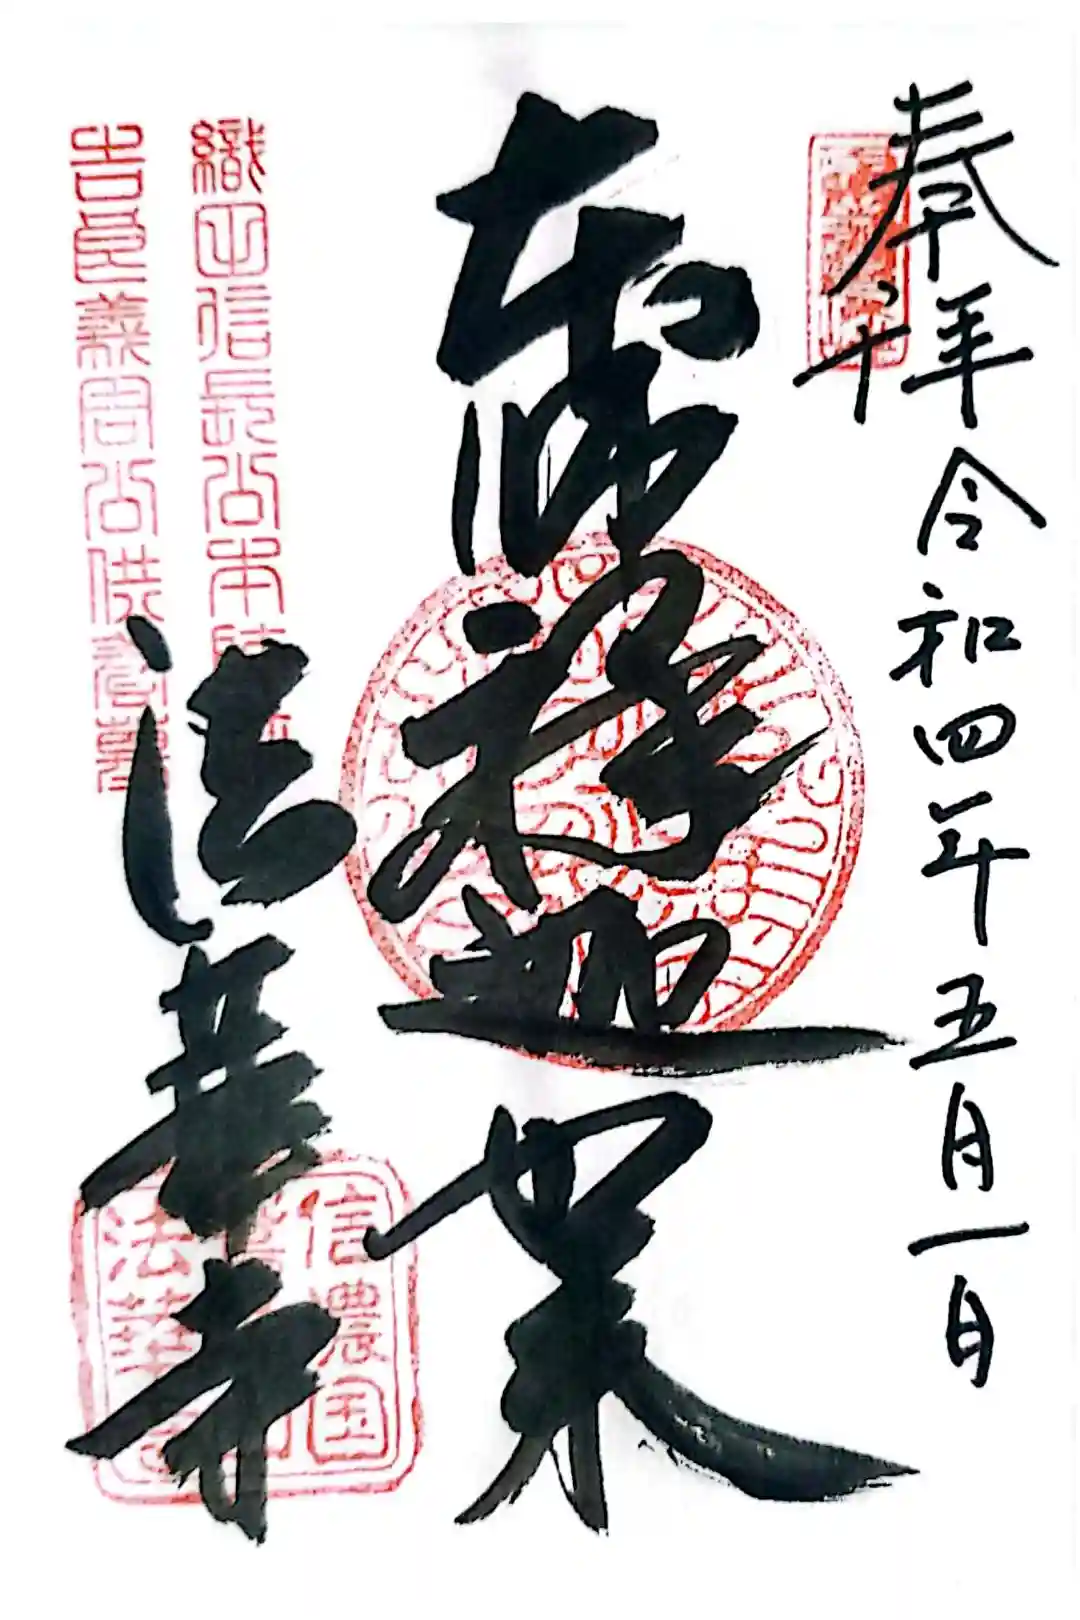 奉拝 令和四年五月一日
本師釈迦牟尼
法華寺
織田信長公本陣
吉良義周公供養
信濃国
法華寺